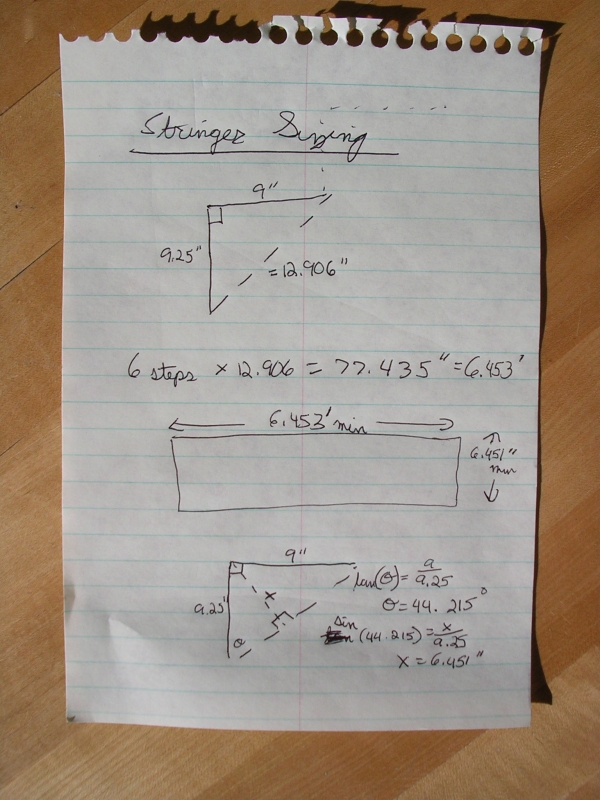 Stringer Sizing
9"
9.25"
=12.906"
6 steps × 12.906 = 77.435" = 6.453'
6.453' min
6.451"
min
9"
9.25"
x
θ
tan(θ) = 9/9.25
θ = 44.215°
sin
(44.215) = x/9.25
x = 6.451"